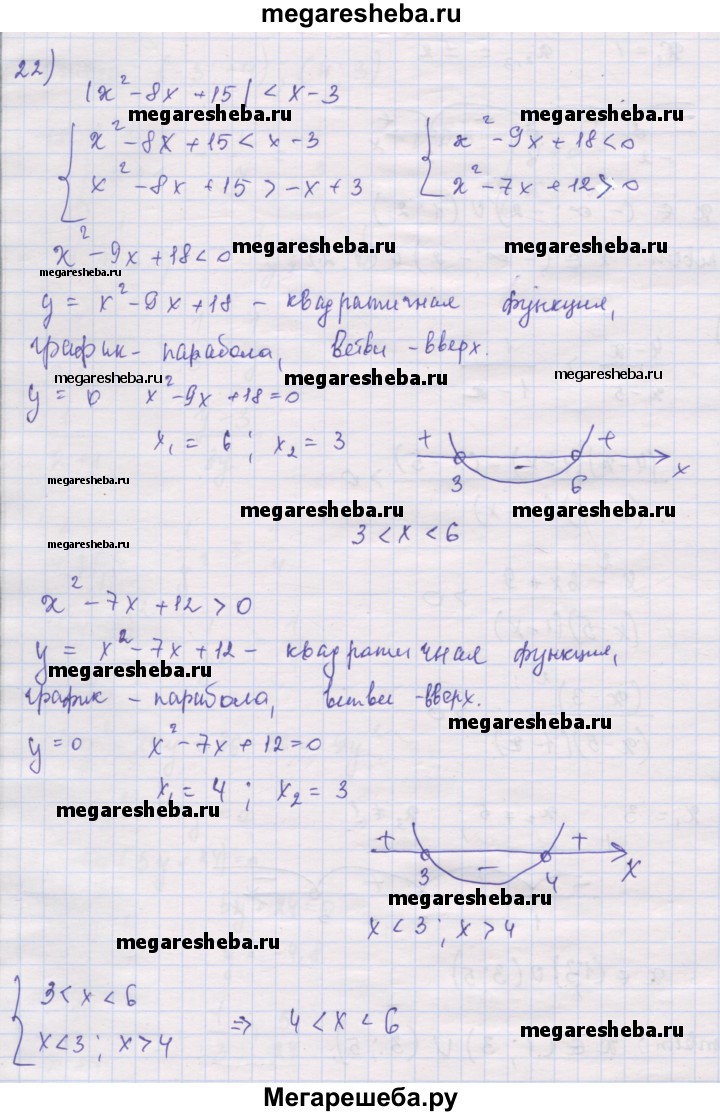 megaresheba.ru
22)
|x²-8x+15|<x-3
megaresheba.ru megaresheba.ru
{ x²-8x+15<x-3 { x²-9x+18<0
x²-8x+15>-x+3 x²-7x+12>0
x²-9x+18<0 megaresheba.ru megaresheba.ru
megaresheba.ru
y = x²-9x+18 - квадратичная функция,
график - парабола, ветви - вверх.
megaresheba.ru megaresheba.ru megaresheba.ru
y = 0 x²-9x+18=0
x₁ = 6; x₂ = 3
+ - + x
3 6
megaresheba.ru
megaresheba.ru megaresheba.ru
3<x<6
megaresheba.ru
x²-7x+12>0
y = x²-7x+12 - квадратичная функция,
megaresheba.ru
график - парабола, ветви - вверх.
megaresheba.ru
y=0 x²-7x+12=0
x₁ = 4; x₂ = 3
megaresheba.ru
+ - + x
3 4
megaresheba.ru
x<3; x>4
megaresheba.ru
{ 3<x<6
x<3; x>4 ⇒ 4<x<6
megaresheba.ru
Мегарешеба.ру